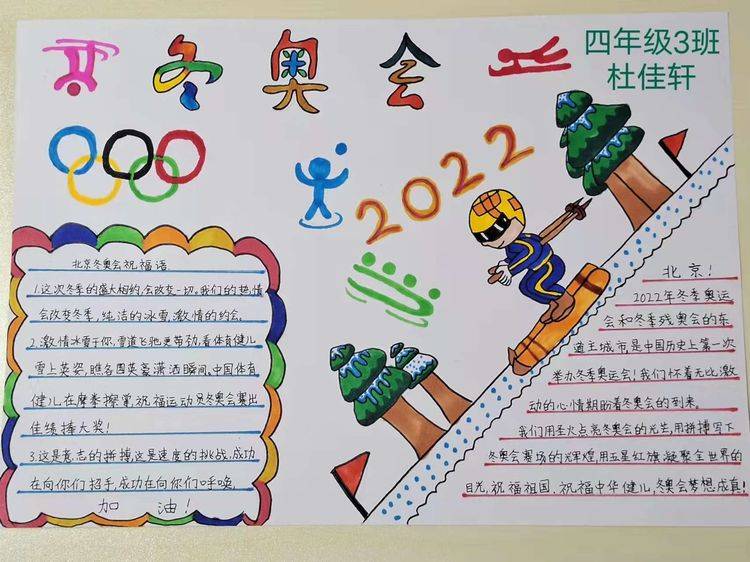 冬奥会
四年级3班
杜佳轩
2022
北京冬奥会祝福语
1.这次冬季的盛大相约,会改变一切。我们的热情
会改变冬季,纯洁的冰雪,激情的约会。
2.激情冰雪于你,雪道飞驰更带劲,看体育健儿
雪上英姿,瞧各国英豪潇洒瞬间,中国体育
健儿在摩拳擦掌,祝福运动员冬奥会赛出
佳绩捧大奖!
3.这是意志的拼搏,这是速度的挑战,成功
在向你们招手,成功在向你们呼唤。
加油!
北京!
2022年冬季奥运
会和冬季残奥会的东
道主城市是中国历史上第一次
举办冬季奥运会!我们怀着无比激
动的心情期盼着冬奥会的到来。
我们用圣火点亮冬奥会的光芒,用拼搏写下
冬奥会赛场的辉煌,用五星红旗凝聚全世界的
目光,祝福祖国,祝福中华健儿,冬奥会梦想成真!